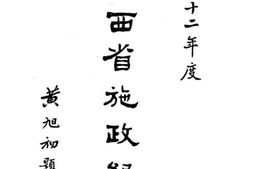 十二年度
西省施政
黃旭初題